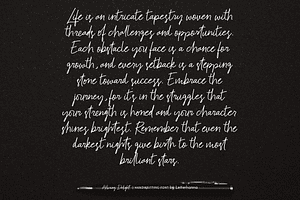 Life is an intricate tapestry woven with
threads of challenges and opportunities.
Each obstacle you face is a chance for
growth, and every setback is a stepping
stone toward success. Embrace the
journey, for it's in the struggles that
your strength is honed and your character
shines brightest. Remember that even the
darkest nights give birth to the most
brilliant stars.